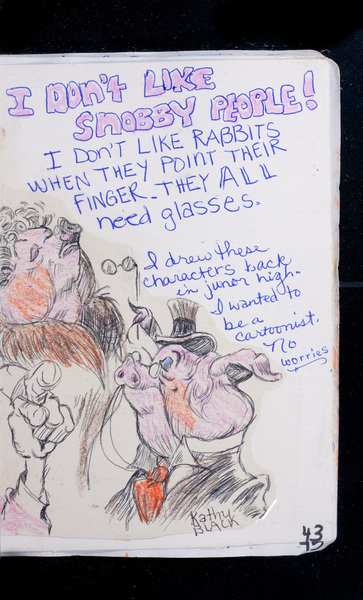 I DON'T LIKE
SNOBBY PEOPLE!
I DON'T LIKE RABBITS
WHEN THEY POINT THEIR
FINGER. THEY ALL
need glasses.
I drew these
characters back
in junor high.
I wanted to
be a
cartoonist.
No
worries
Kathy
BLACK
43